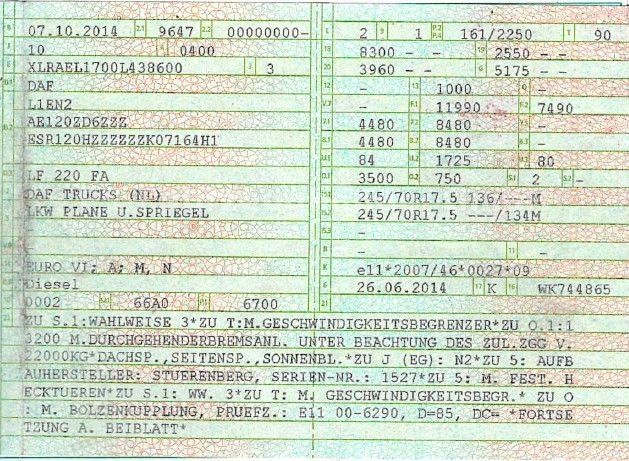 B 07.10.2014 2.1 9647 2.2 00000000- L 2 9 1 P.2 P.4 161/2250 T 90
J 10 4 0400 18 8300 - - 19 2550 - -
E XLRAEL1700L438600 3 3 20 3960 - - G 5175 - -
D.1 DAF 12 - 13 1000 Q -
L1EN2 V.7 - F.1 11990 F.2 7490
D.2 AE120ZD6ZZZ 7.1 4480 7.2 8480 7.3 -
ESR120HZZZZZZK07164H1 8.1 4480 8.2 8480 8.3 -
U.1 84 U.2 1725 U.3 80
D.3 LF 220 FA O.1 3500 O.2 750 S.1 2 S.2 -
2 DAF TRUCKS (NL) 15.1 245/70R17.5 136/---M
5 LKW PLANE U.SPRIEGEL 15.2 245/70R17.5 ---/134M
- 15.3 -
V.9 - R - 11 -
14 EURO VI; A; M, N K e11*2007/46*0027*09
P.3 Diesel 6 26.06.2014 17 K 16 WK744865
10 0002 14.1 66A0 P.1 6700 21
22 ZU S.1:WAHLWEISE 3*ZU T:M.GESCHWINDIGKEITSBEGRENZER*ZU O.1:1
3200 M.DURCHGEHENDERBREMSANL. UNTER BEACHTUNG DES ZUL.ZGG V.
22000KG*DACHSP.,SEITENSP.,SONNENBL.*ZU J (EG): N2*ZU 5: AUFB
AUHERSTELLER: STUERENBERG, SERIEN-NR.: 1527*ZU 5: M. FEST. H
ECKTUEREN*ZU S.1: WW. 3*ZU T: M. GESCHWINDIGKEITSBEGR.* ZU O
: M. BOLZENKUPPLUNG, PRUEFZ.: E11 00-6290, D=85, DC= *FORTSE
TZUNG A. BEIBLATT*